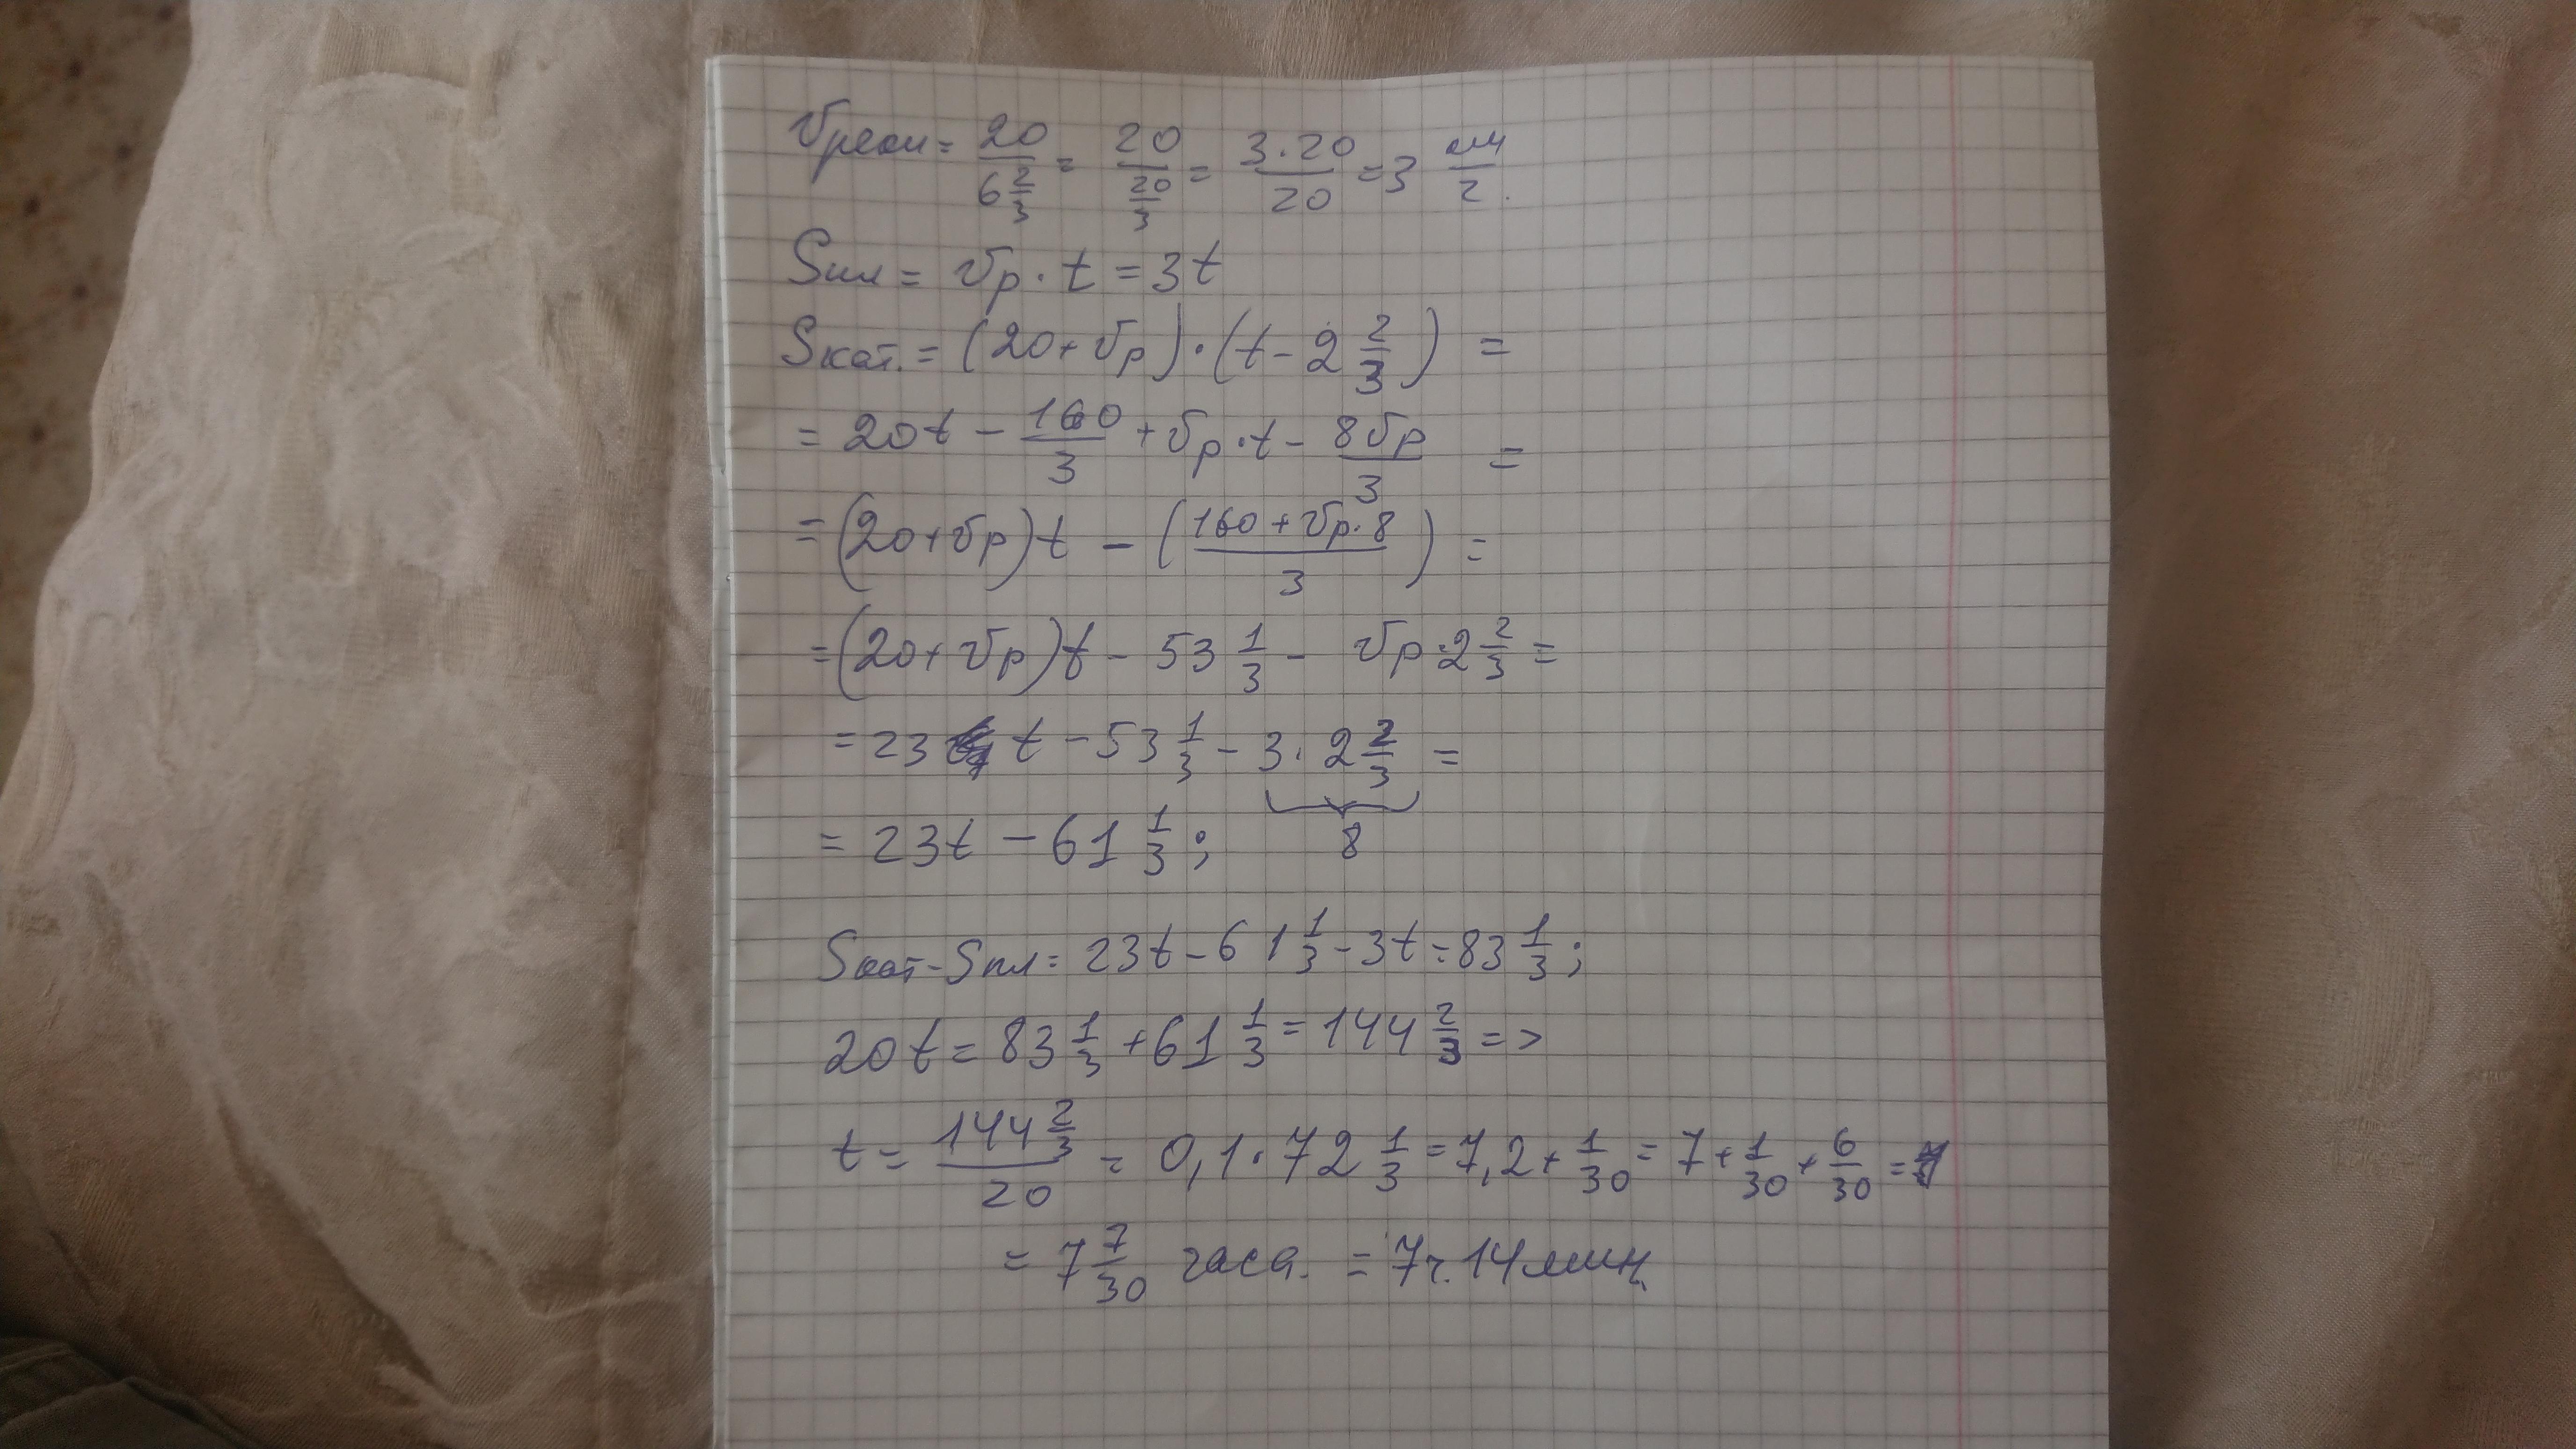 Vреки = 20/(6 2/3) = 20/(20/3) = 3·20/20 = 3 км/ч.
Sпл = Vр · t = 3t
Sкат. = (20 + Vр)·(t - 2 2/3) =
= 20t - 160/3 + Vр·t - 8Vр/3 =
= (20+Vр)t - ((160 + Vр·8)/3) =
= (20 + Vр)t - 53 1/3 - Vр·2 2/3 =
= 23 t - 53 1/3 - 3·2 2/3 =
= 23t - 61 1/3; 8
Sкат - Sпл = 23t - 61 1/3 - 3t = 83 1/3;
20t = 83 1/3 + 61 1/3 = 144 2/3 =>
t = (144 2/3)/20 = 0,1·72 1/3 = 7,2 + 1/30 = 7 + 1/30 + 6/30 =
= 7 7/30 часа. = 7ч. 14 мин.